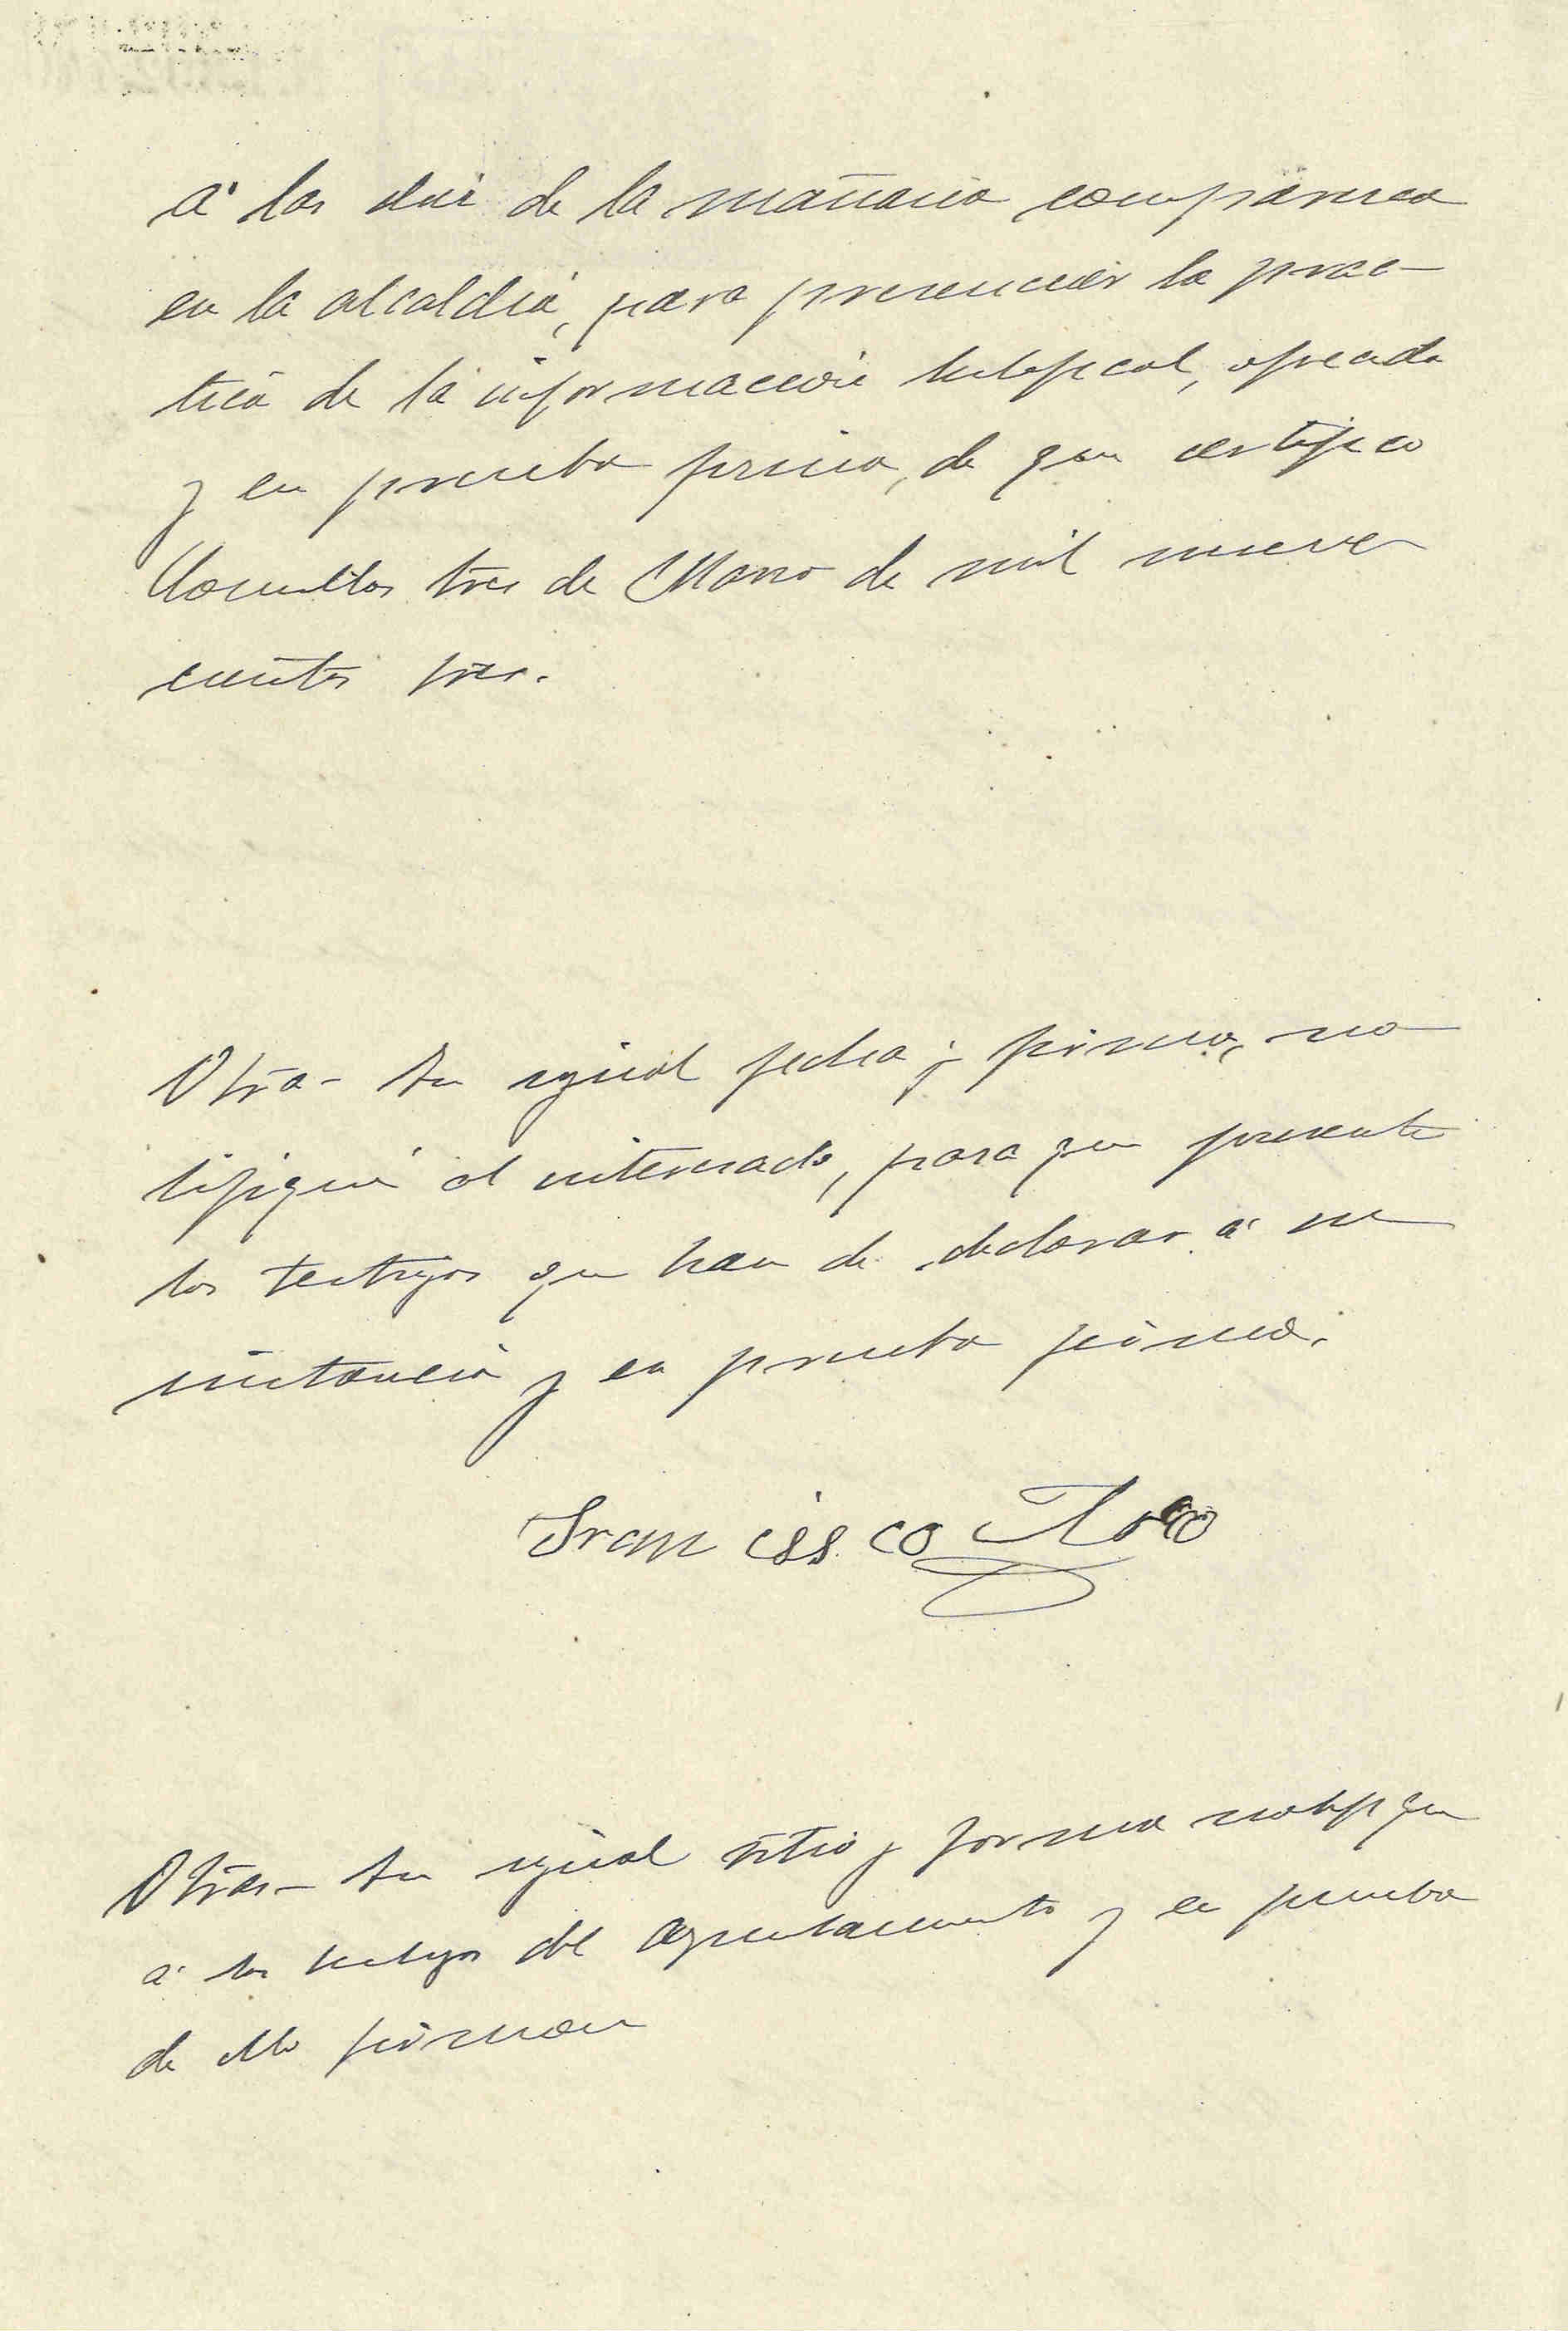 á las diez de la mañana comparezca
en la alcaldia, para presenciar la prac-
tica de la información testifical, ofrecida
y en prueba firma, de que certifico
tres de Marzo de mil nueve
cientos tres.
Otra- En igual fecha y forma, no
tifiqué al interesado, para que presente
los testigos que han de declarar á su
instancia y en prueba firma.
Francissco
Otra- En igual sitio y forma notifique
á los testigos del Ayuntamiento y en prueba
de ello firman